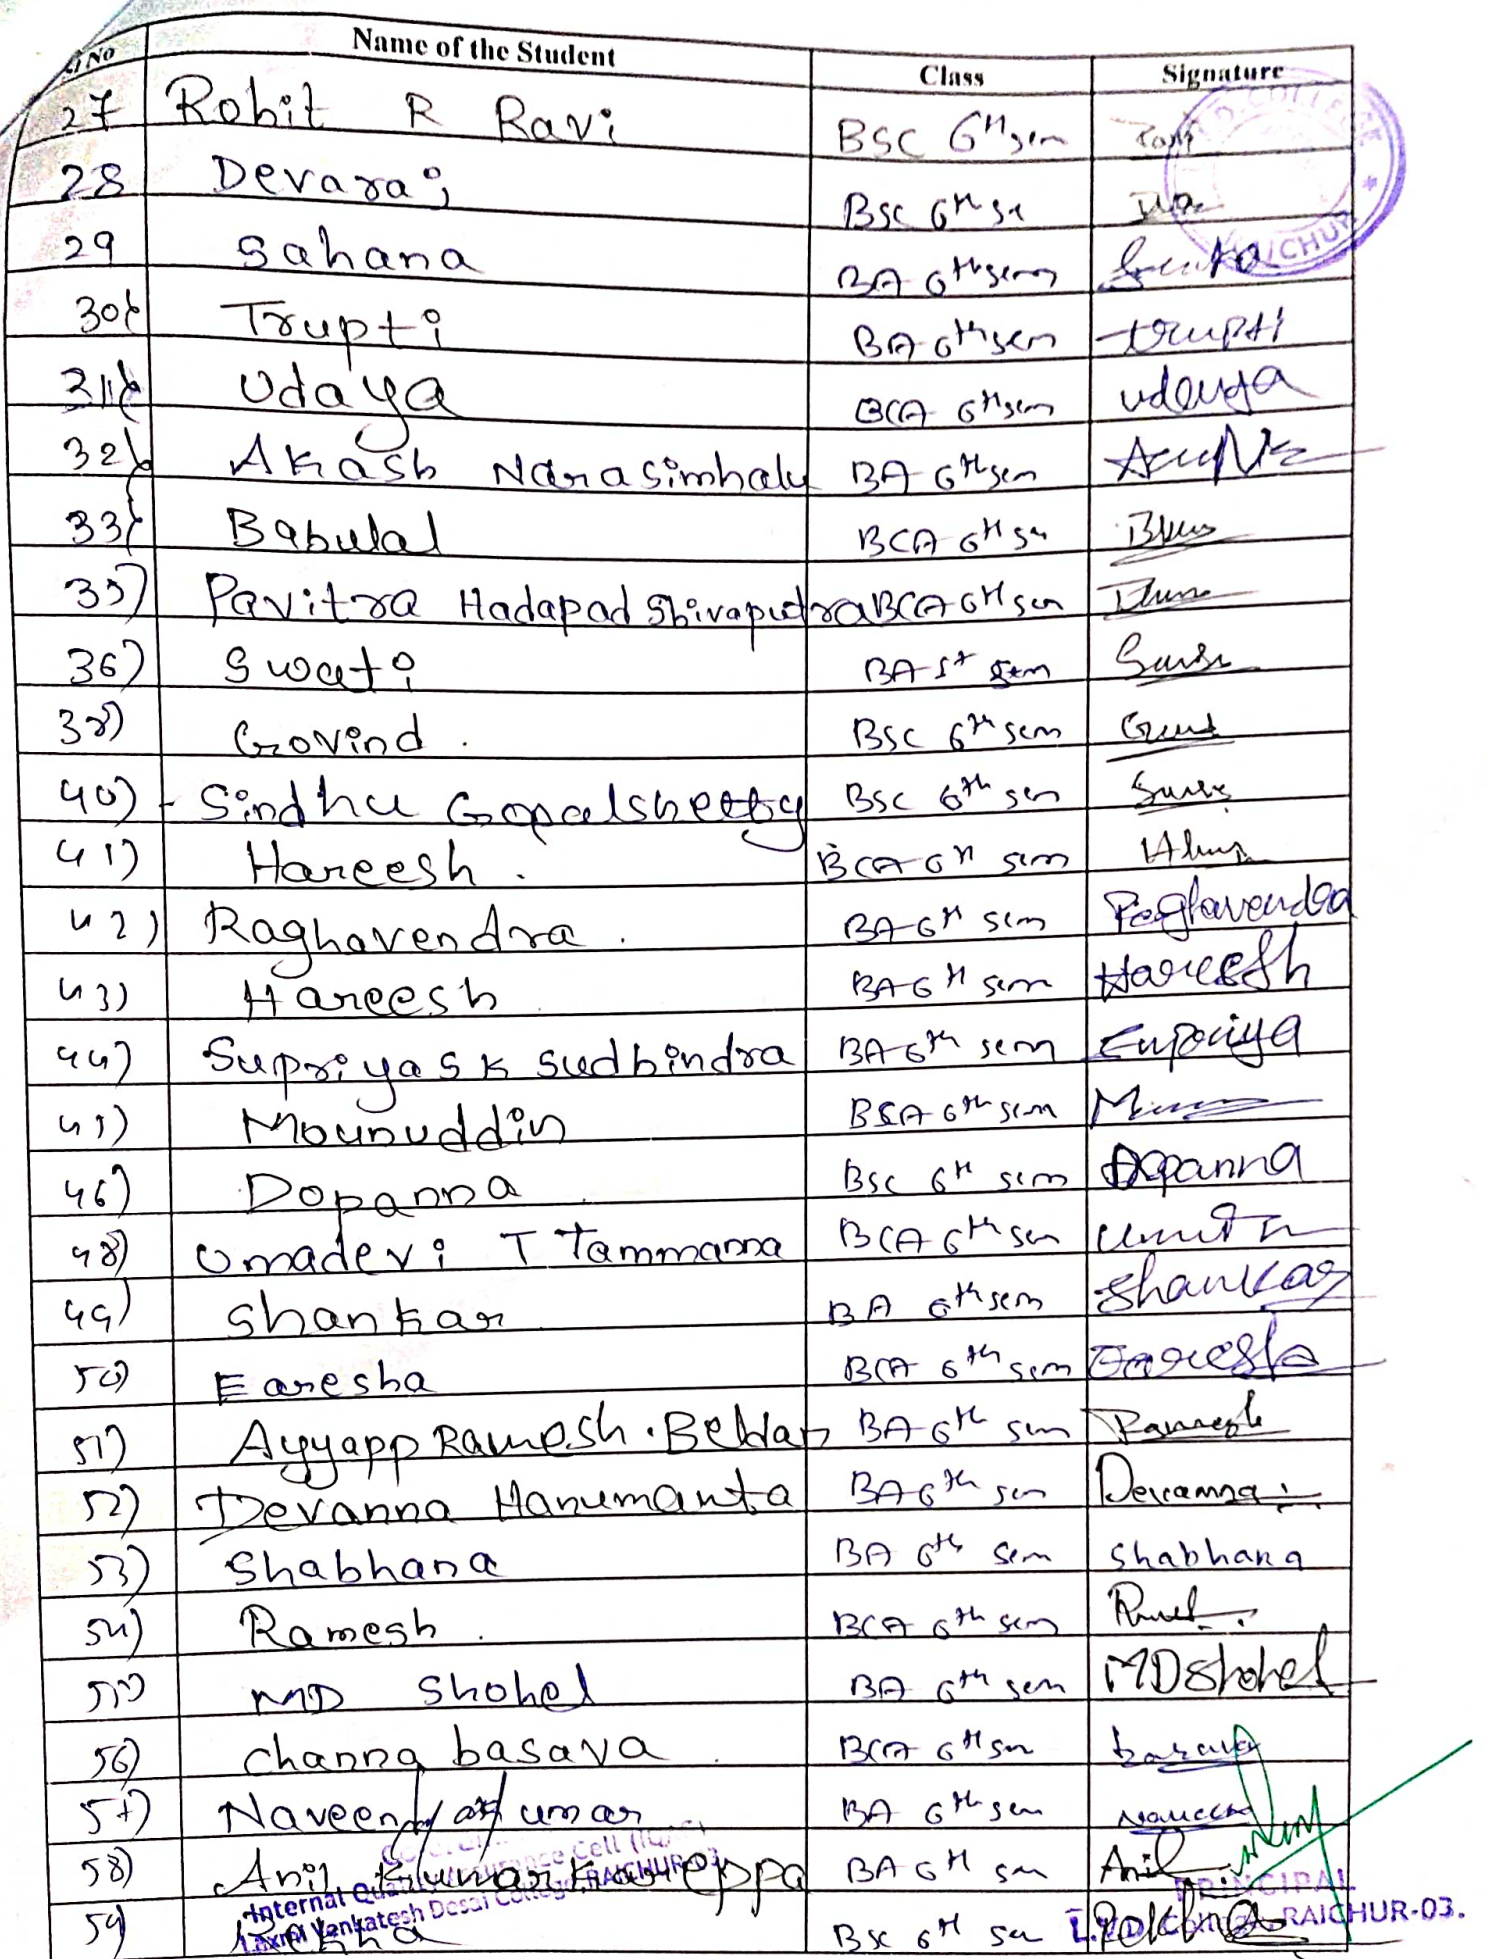 Sl No Name of the Student Class Signature
27 Rohit R Ravi BSC 6th sem
28 Devaraj BSC 6th se
29 Sahana BA 6th sem
30) Trupti BA 6th sem trupti
31) Udaya BCA 6th sem udauya
32) Akash Narasimhalu BA 6th sem
33) Babulal BCA 6th sem
35) Pavitra Hadapad Shivaputra BCA 6th sem
36) Swati BA sem
38) Govind. BSC 6th sem
40) Sindhu Gopalshetty BSC 6th sem
41) Hareesh. BCA 6th sem
42) Raghavendra. BA 6th sem Raghavendra
43) Hareesh BA 6th sem Hareesh
44) Supriya S K Sudhindra BA 6th sem Supriya
45) Mounuddin 6th sem
46) Dopanna BSC 6th sem Dopanna
48) Umadevi T Tammanna BCA 6th sem
49) Shankar BA 6th sem Shankar
50) Earesha BCA 6th sem Earesha
51) Ayyapp Ramesh. Beldar BA 6th sem Ramesh
52) Devanna Hanumanta BA 6th sem Devanna
53) Shabhana BA 6th sem Shabhana
54) Ramesh. BCA 6th sem
55) MD Shohel BA 6th sem MD Shohel
56) Channa basava BCA 6th sem basava
57) Naveen kumar BA 6th sem Naveen
58) Anil Kumar BA 6th sem Anil
59) Rekha BSC 6th sem Rekha
Internal Quality Assurance Cell (IQAC)
Laxmi Venkatesh Desai College, RAICHUR-03.
PRINCIPAL
L.V.D. College, RAICHUR-03.